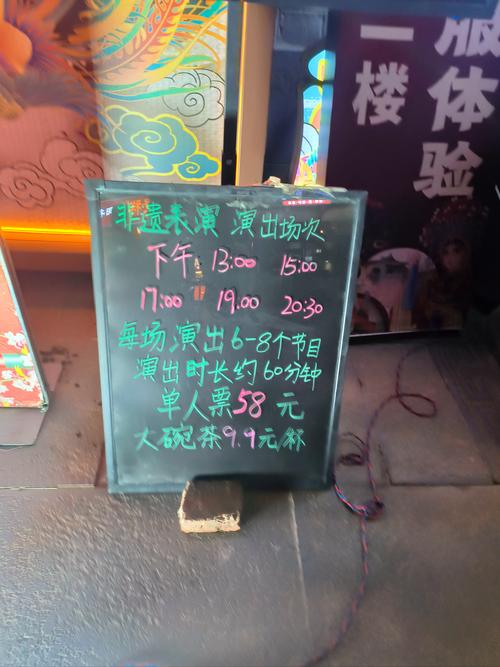 二楼
服体验
非遗表演 演出场次
下午 13:00 15:00
17:00 19.00 20:30
每场演出6-8个节目
演出时长约60分钟
单人票58元
大碗茶9.9元/杯